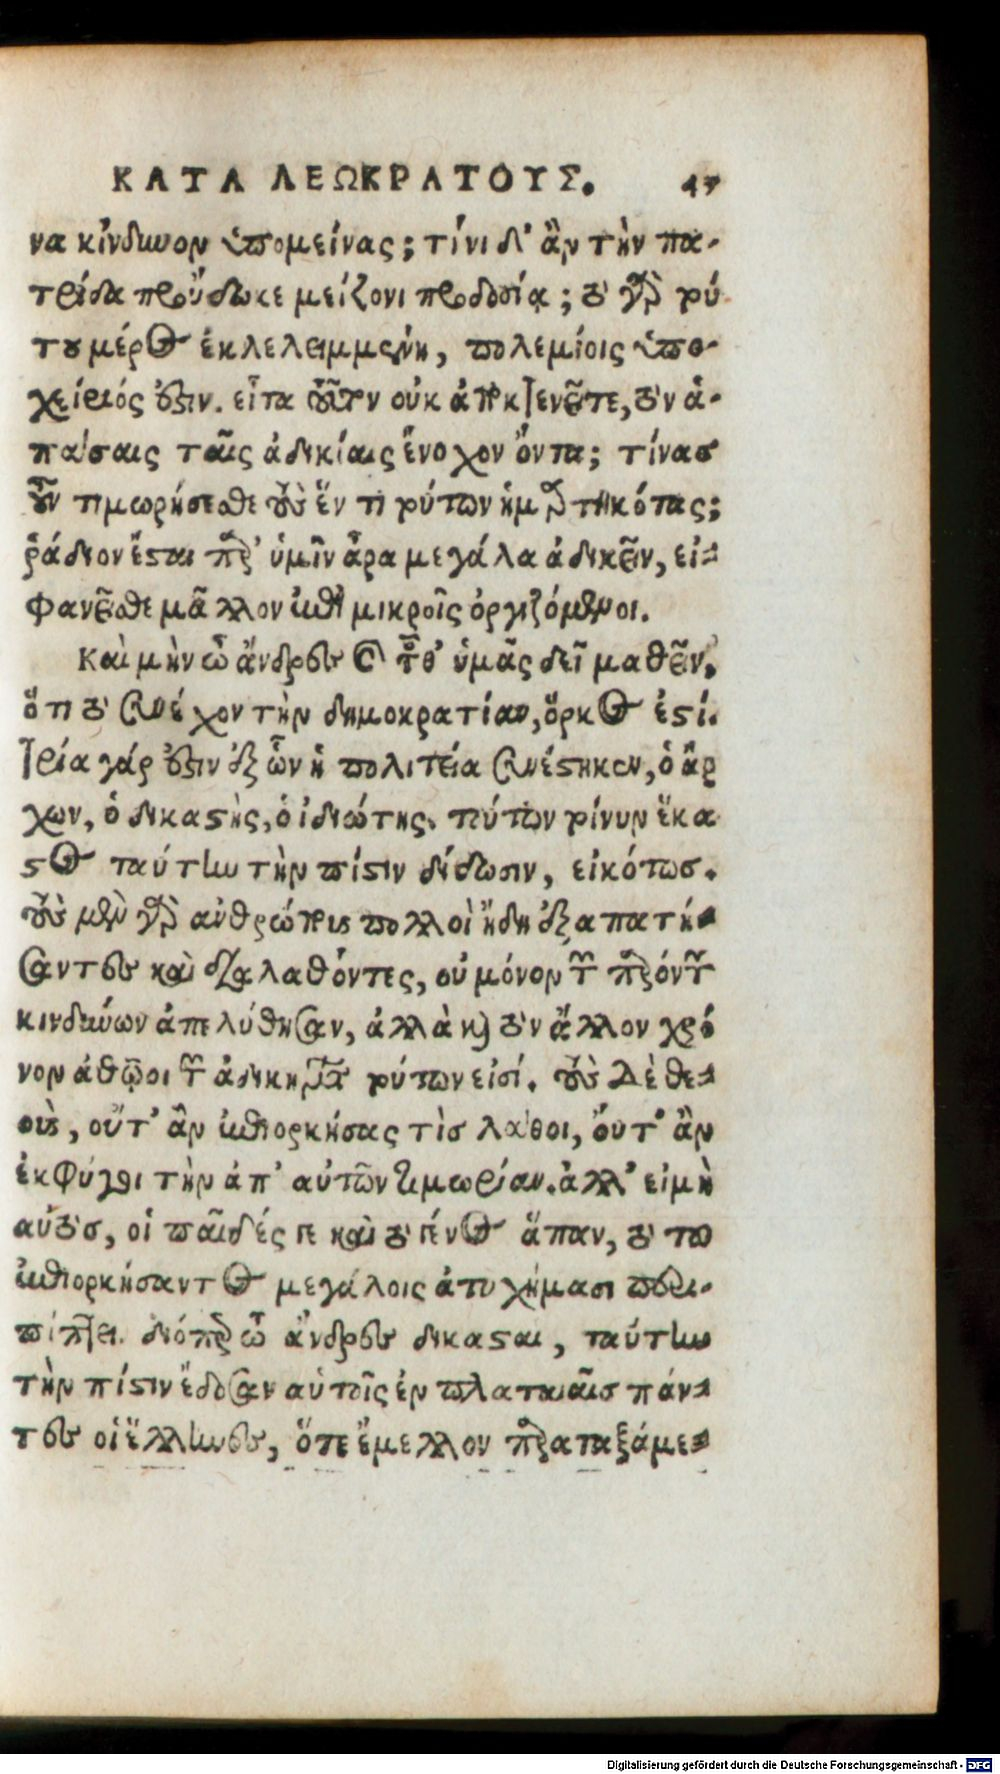 ΚΑΤΑ ΛΕΩΚΡΑΤΟΥΣ. 47
να κίνδυνον ὑπομείνας; τίνι δ' ἂν τὴν πα-
τρίδα προὔδωκε μείζονι προδοσίᾳ; τὸ γὰρ τού
του μέρος ἐκλελειμμένη, πολεμίοις ὑπο-
χείριός ἐστιν. εἶτα τοῦτον οὐκ ἀποκτενεῖτε, τὸν ἁ-
πάσαις ταῖς ἀδικίαις ἔνοχον ὄντα; τίνας
οὖν τιμωρήσεσθε τοὺς ἕν τι τούτων ἡμαρτηκότας;
ῥάδιον ἔσται παρ' ὑμῖν ἄρα μεγάλα ἀδικεῖν, εἰ
φανεῖσθε μᾶλλον ἐπὶ μικροῖς ὀργιζόμενοι.
Καὶ μὴν ὦ ἄνδρες καὶ τοῦθ' ὑμᾶς δεῖ μαθεῖν,
ὅτι τὸ συνέχον τὴν δημοκρατίαν, ὅρκος ἐστί.
τρία γάρ ἐστιν ἐξ ὧν ἡ πολιτεία συνέστηκεν, ὁ ἄρ
χων, ὁ δικαστὴς, ὁ ἰδιώτης. τούτων τοίνυν ἕκα
στος ταύτην τὴν πίστιν δίδωσιν, εἰκότως.
τοὺς μὲν γὰρ ἀνθρώπους πολλοὶ ἤδη ἐξαπατή-
σαντες καὶ διαλαθόντες, οὐ μόνον τῶν παρόντων
κινδύνων ἀπελύθησαν, ἀλλὰ καὶ τὸν ἄλλον χρό
νον ἀθῷοι τῶν ἀδικημάτων τούτων εἰσί. τοὺς δὲ θε-
οὺς, οὔτ' ἂν ἐπιορκήσας τὶς λάθοι, οὔτ' ἂν
ἐκφύγοι τὴν ἀπ' αὐτῶν τιμωρίαν. ἀλλ' εἰ μὴ
αὐτὸς, οἱ παῖδές γε καὶ τὸ γένος ἅπαν, τὸ τοῦ
ἐπιορκήσαντος μεγάλοις ἀτυχήμασι περι-
πίπτει. διόπερ ὦ ἄνδρες δικασταὶ, ταύτην
τὴν πίστιν ἔδοσαν αὑτοῖς ἐν πλαταιαῖς πάν-
τες οἱ ἕλληνες, ὅτε ἔμελλον παραταξάμε-
Digitalisierung gefördert durch die Deutsche Forschungsgemeinschaft - DFG